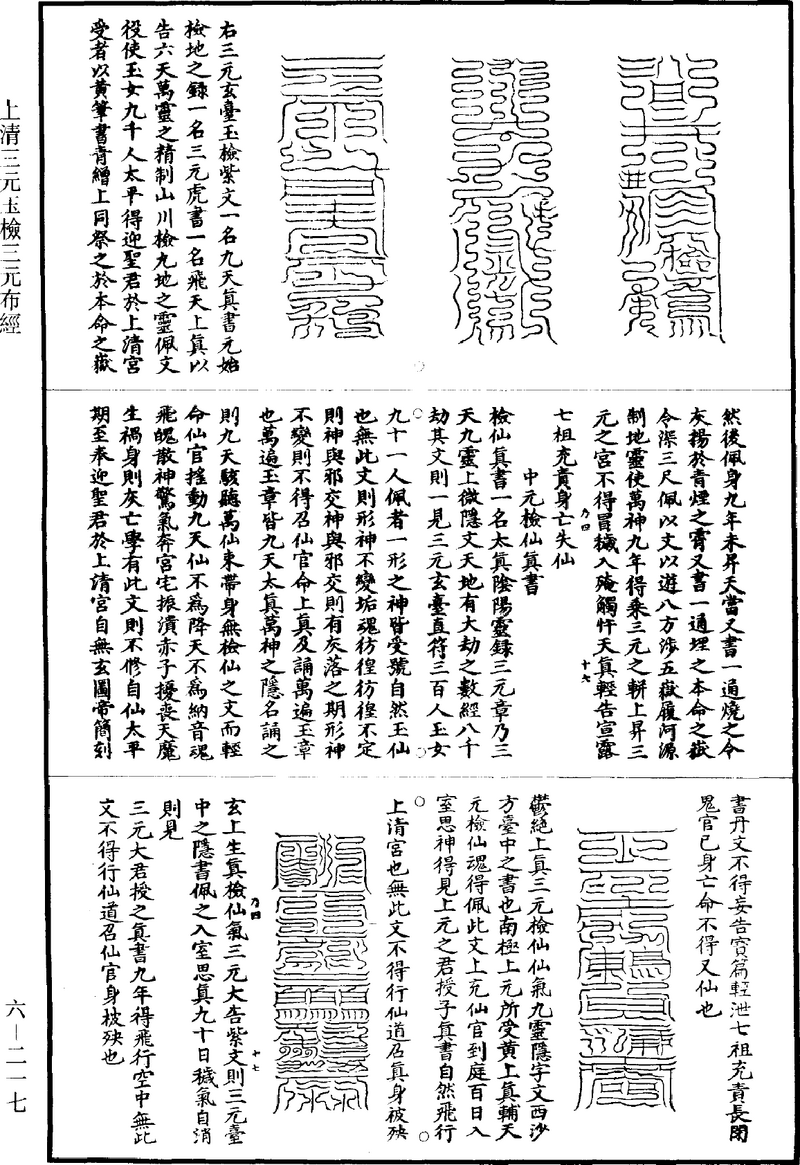 上清三元玉檢三元布經
右三元玄臺玉檢紫文一名九天眞書元始
檢地之錄一名三元虎書一名飛天上眞以
告六天萬靈之精制山川檢九地之靈佩文
役使玉女九千人太平得迎聖君於上清宮
受者以黄筆書青繒上同祭之於本命之嶽
然後佩身九年未昇天當又書一通燒之令
灰揚於青煙之霄又書一通埋之本命之嶽
令深三尺佩以文以遊八方涉五嶽履河源
制地靈使萬神九年得乘三元之軿上昇三
元之宮不得冒穢入殗觸忤天眞輕告宣露
十七
七祖充責身亡失仙
乃四
中元檢仙眞書
檢仙眞書一名太眞陰陽靈錄三元章乃三
天九靈上微隱文天地有大劫之數經八千
劫其文則一見三元玄臺直符三百人玉女
九十一人佩者一形之神皆受號自然玉仙
也無此文則形神不變垢魂彷徨彷徨不定
則神與邪交神與邪交則有灰落之期形神
不變則不得召仙官命上眞及誦萬遍玉章
也萬遍玉章皆九天太眞萬神之隱名誦之
則九天駭聽萬仙束帶身無檢仙之文而輕
命仙官搖動九天仙不爲降天不爲納音魂
飛魄散神驚氣奔宮宅振潰赤子擾喪天魔
生禍身則灰亡學有此文則不修自仙太平
期至奉迎聖君於上清宮自無玄圖帝簡刻
書丹文不得妄告寳篇輕泄七祖充責長閉
鬼官已身亡命不得又仙也
鬱絶上眞三元檢仙仙氣九靈隱字文西沙
方臺中之書也南極上元所受黄上眞輔天
元檢仙魂得佩此文上充仙官到庭百日入
室思神得見上元之君授子眞書自然飛行
上清宮也無此文不得行仙道召眞身被殃
玄上生眞檢仙氣三元大告紫文則三元臺
乃四
中之隱書佩之入室思眞九十日穢氣自消
十七
則見
三元大君授之眞書九年得飛行空中無此
文不得行仙道召仙官身被殃也
六—二一七